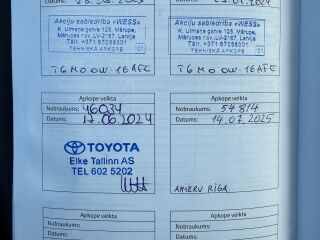 Datums:
Datums:
Akciju sabiedrība «WESS»
K. Ulmaņa gatve 125, Mārupe,
Mārupes nov., LV-2167, Latvija
Tālr. +371 67068301
TEHNISKĀ APKOPE 01
Akciju sabiedrība «WESS»
K. Ulmaņa gatve 125, Mārupe,
Mārupes nov., LV-2167, Latvija
Tālr. +371 67068301
TEHNISKĀ APKOPE 01
TGMO OW-16AFE
TGMO OW-16AFE
Apkope veikta
Nobraukums: 46034
Datums: 17.06.2024
TOYOTA
Elke Tallinn AS
TEL 602 5202
Apkope veikta
Nobraukums: 54814
Datums: 14.07.2025
AMSERV RĪGA.
Apkope veikta
Nobraukums:
Datums:
Apkope veikta
Nobraukums:
Datums: